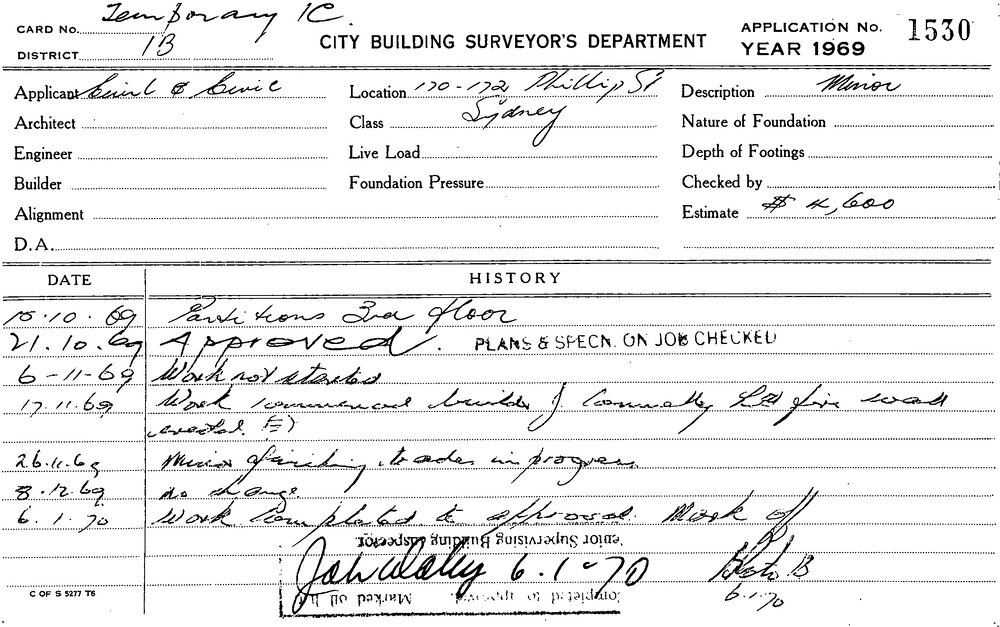 CARD No. Temporary 1C.
DISTRICT 1B
CITY BUILDING SURVEYOR'S DEPARTMENT
APPLICATION No. 1530
YEAR 1969
Applicant Civil & Civic
Location 170-172 Phillip St
Sydney
Description Minor
Architect
Class
Nature of Foundation
Engineer
Live Load
Depth of Footings
Builder
Foundation Pressure
Checked by
Alignment
Estimate $ 4,600
D.A.
DATE HISTORY
15.10.69 Partitions 3rd floor
21.10.69 Approved. PLANS & SPECN. ON JOB CHECKED
6-11-69 Work not started
17.11.69 Work commenced builder J. Connolly Ltd fire wall
erected.
26.11.69 Minor finishing trades in progress
8.12.69 no change.
6.1.70 Work completed to approval. Mark off
Senior Supervising Building Inspector
6.1-70
6.1.70
Completed to approval. Marked off
C OF S 5277 T6